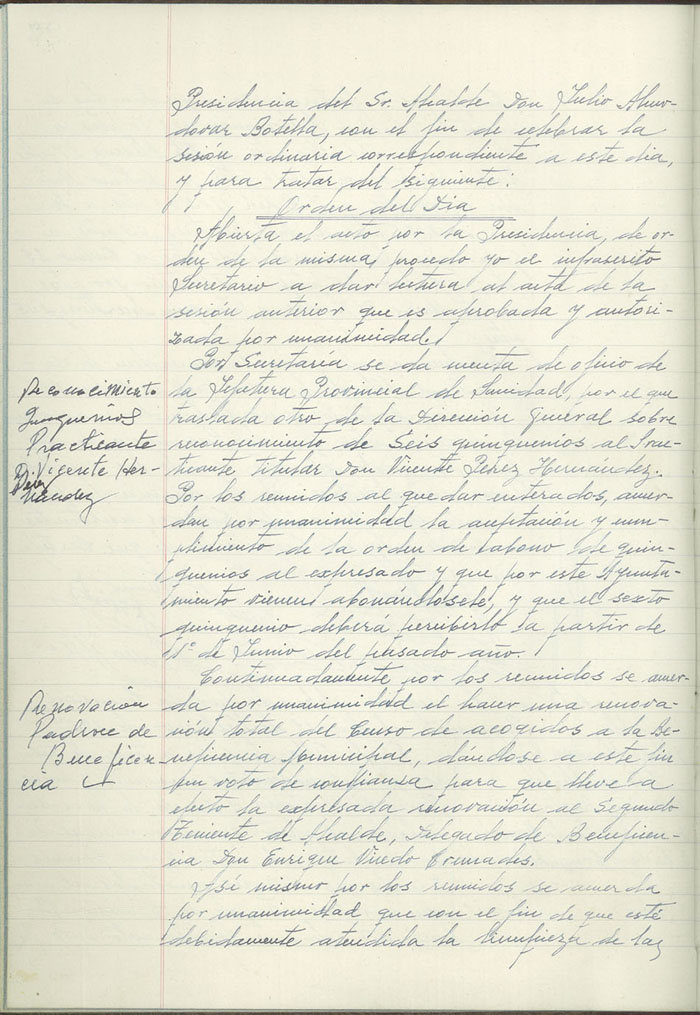 Presidencia del Sr. Alcalde Don Julio Almo-
dovar Botella, con el fin de celebrar la
sesión ordinaria correspondiente a este dia,
y para tratar del siguiente:
Orden del Dia
Abierta el acto por la Presidencia, de or-
den de la misma, procedo yo el infrascrito
Secretario a dar lectura al acta de la
sesión anterior que es aprobada y autori-
zada por unanimidad.
Por Secretaría se da cuenta de oficio de
la Jefatura Provincial de Sanidad, por el que
traslada otro de la Dirección General sobre
reconocimiento de Seis quinquenios al Prac-
ticante titular Don Vicente Pérez Hernández.
Por los reunidos al quedar enterados, acuer-
dan por unanimidad la aceptación y cum-
plimiento de la orden de abono de quin-
quenios al expresado y que por este Ayunta-
miento vienen abonándosele, y que el sexto
quinquenio deberá percibirlo a partir de
1º de Junio del pasado año.
Continuadamente por los reunidos se acuer-
da por unanimidad el hacer una renova-
ción total del Censo de acogidos a la Be-
neficencia Municipal, dándose a este fin
un voto de confianza para que lleve a
efecto la expresada renovación al Segundo
Teniente de Alcalde, Delegado de Beneficen-
cia Don Enrique Cremades.
Así mismo por los reunidos se acuerda
por unanimidad que con el fin de que esté
debidamente atendida la limpieza de las
Reconocimiento
Quinquenios
Practicante
D. Vicente Her-
Pérez
nández
Renovación
Padron de
Beneficen-
cia